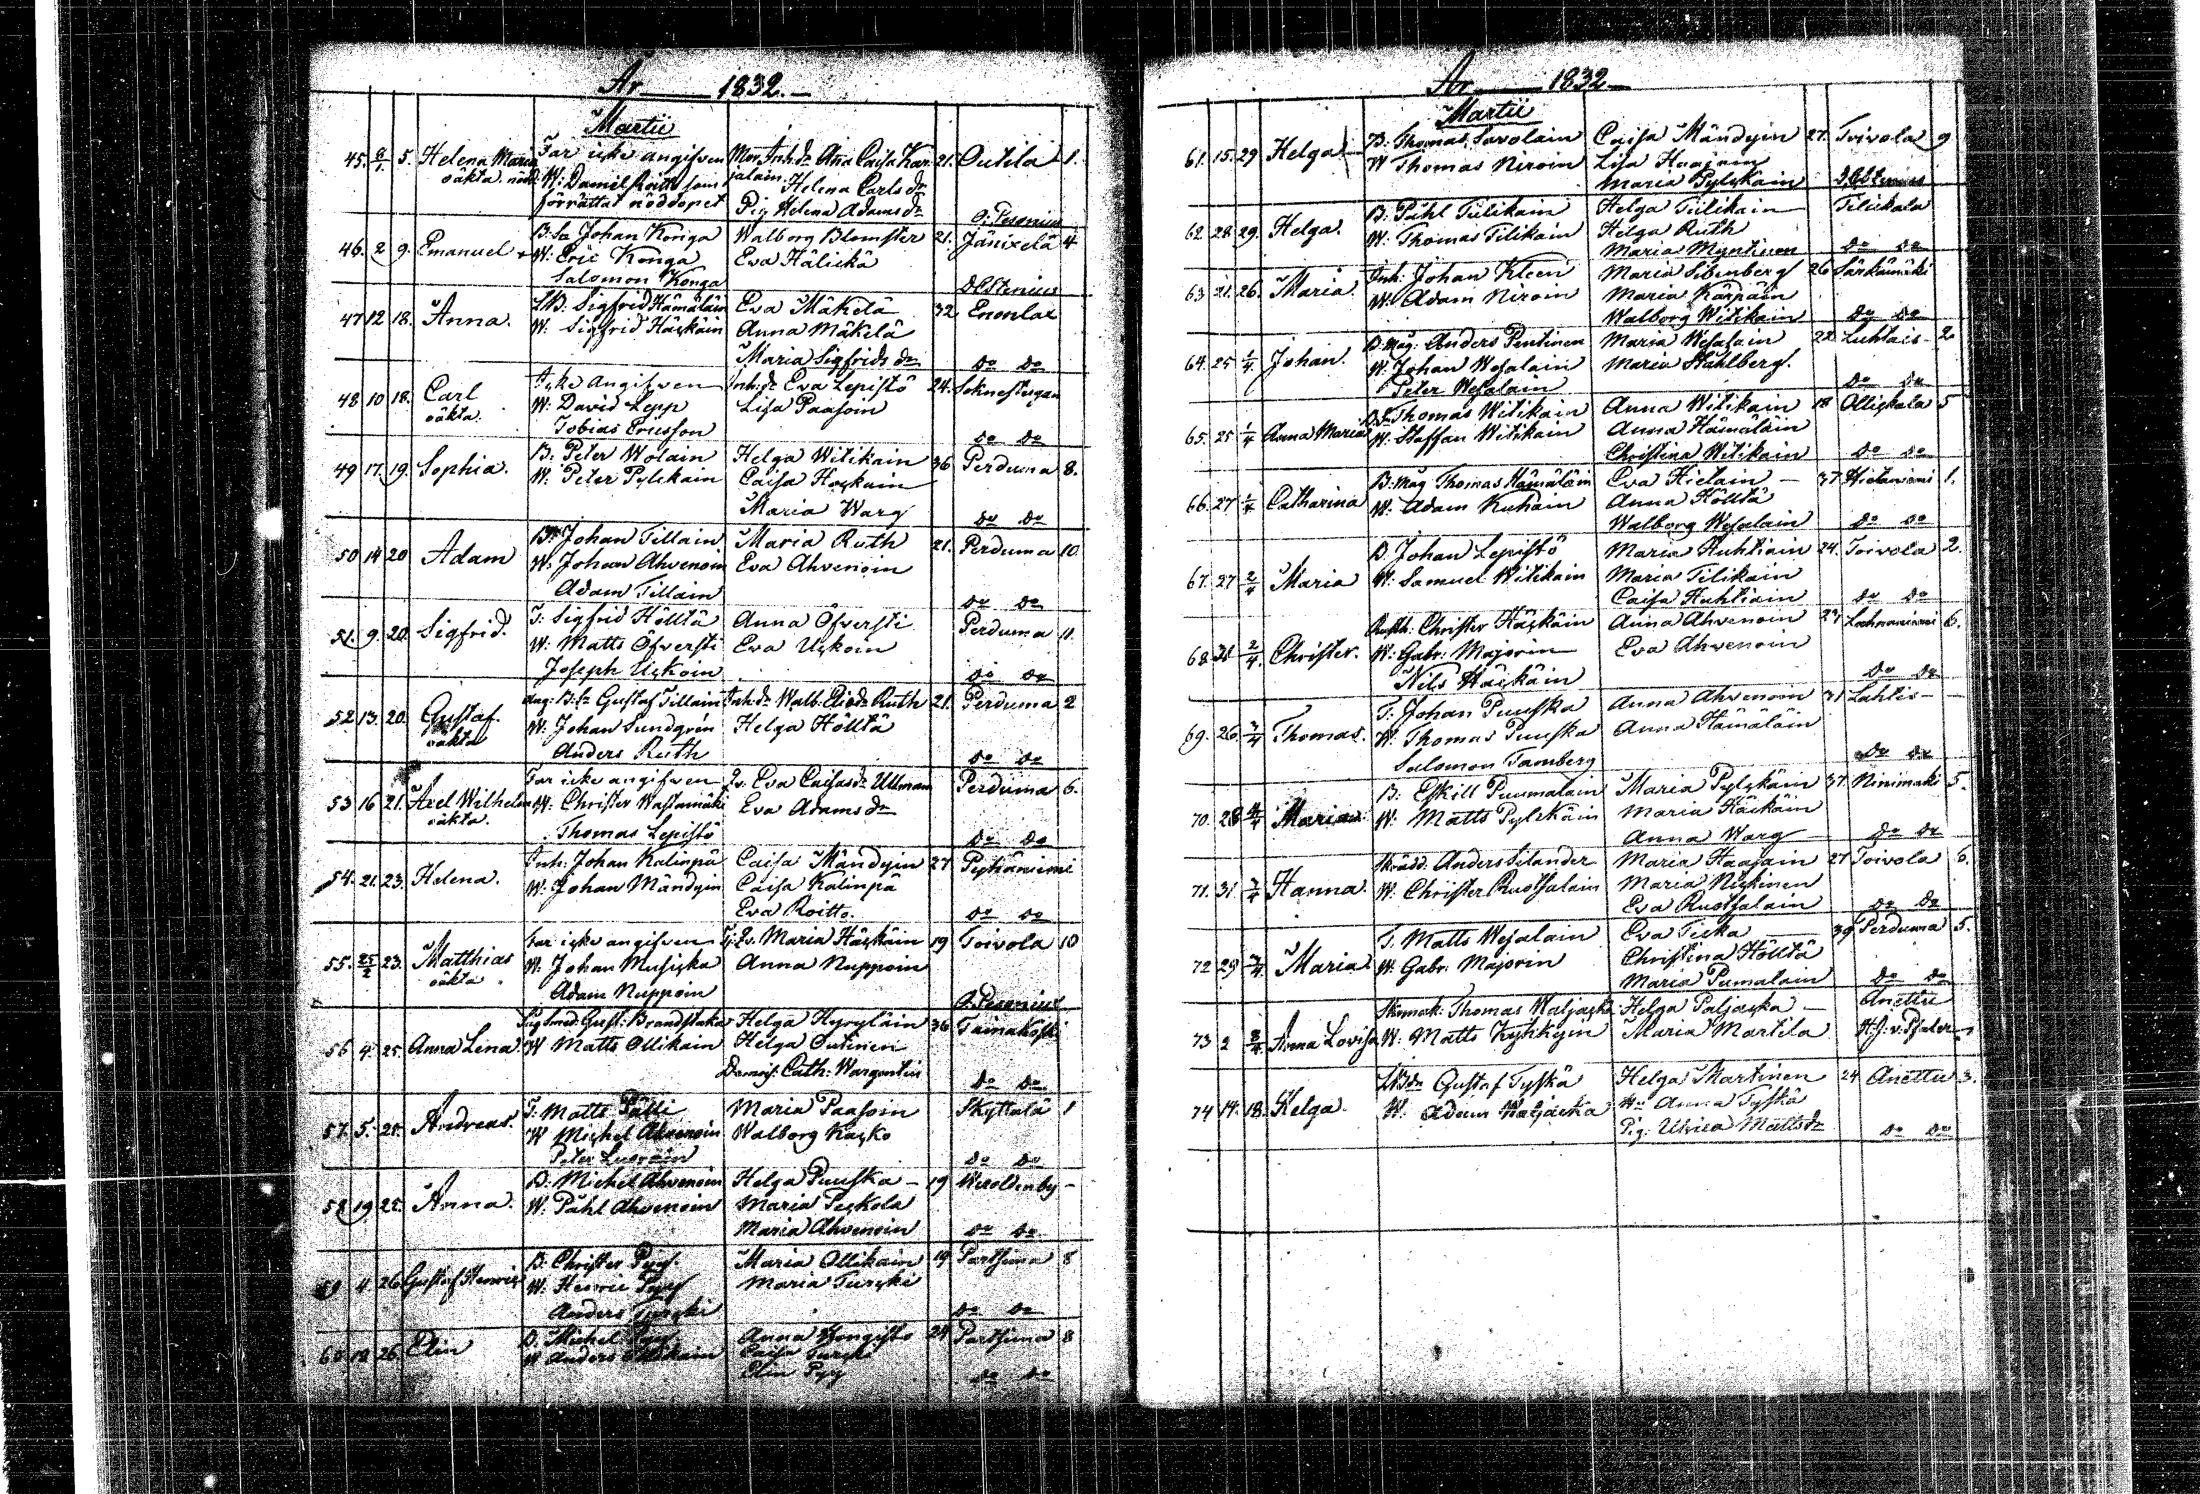 År 1832.
Martii
45. 9/1. 5. Helena Maria Far icke angifven Mor. Inh. dr Ana Caisa Kar- 21. Outila 1.
oäkta. nöd. W: Daniel Roitto som jalain. Helena Carlsdr
förrättat nöddopet Pig Helena Adamsdr G: Pesonius
46. 2 9. Emanuel B. Sn Johan Konga Walborg Blomster 21. Jänixelä 4.
W: Eric Konga Eva Hälickä
Salomon Konga Alstenius
47 12 18. Anna. Sigfrid Hämäläin Eva Mäkelä 32 Enonlax
W. Sigfrid Häskäin Anna Mäkelä
Maria Sigfridsdr do do
48 10 18. Carl Icke angifven Inh: dr Eva Lepistö 24. Soknestugan
oäkta. W: David Lepp Lisa Paasoin
Tobias Ericsson do do
49 17. 19. Sophia. B: Peter Wolain Helga Witikain 36 Perduma 8.
W. Peter Pylskain Caisa Haskain
Maria Warg do do
50 14 20 Adam Johan Tillain Maria Ruth 21. Perduma 10.
W. Johan Ahvenoin Eva Ahvenoin
Adam Tillain do do
51. 9. 20. Sigfrid. T: Sigfrid Hölltä Anna Öfversti Perduma 11.
W: Matts Öfversti Eva Uskoin
Joseph Uskoin do do
52. 13. 20. Gustaf. Ang: B. Sn Gustaf Tillain Inh. dr Walb: Ruth 21. Perduma 2
oäkta W. Johan Sundgrén Helga Hölltä
Anders Ruth do do
53 16 21. Axel Wilhelm Far icke angifven Eva Caisasdr Ullman Perduma 6.
oäkta. W. Christer Wastamäki Eva Adamsdr
Thomas Lepistö do do
54. 21. 23. Helena. Inh: Johan Kalinpä Caisa Mändyin 27 Pyhäniemi
W. Johan Mändyin Caisa Kalinpä
Eva Roitto. do do
55. 25/2 23. Matthias Far icke angifven Maria Häskäin 19 Toivola 10
oäkta W. Johan Musicka Anna Nuppoin
Adam Nuppoin G. Pesonius
56 4. 25. Anna Lena. Gust: Brandstaka Helga Hyryläin 36 Tainakoski
W Matts Ollikain Helga Outinen
Demois. Cath: Wargentin do do
57. 5. 25. Andreas. T: Matts Pälli Maria Paasoin Skyttälä 1
W Michel Ahvenoin Walborg Kasko
Peter do do
58 19 25. Anna. B: Michel Ahvenoin Helga Puuska 19 Weroldenby
W. Påhl Ahvenoin Maria Peskola
Maria Ahvenoin do do
59 4 26 Gustaf Henric B. Christer Pyy. Maria Ollikain 19 Partsima 8
W. Henric Pyy Maria Turski
Anders Turski do do
60 19 26. Elin B. Michel Pyy Anna Hongisto 24 Partsima 8
W Anders Ollikain Caisa Turski
Elin Pyy do do
År 1832
Martii
61. 15. 29 Helga B: Thomas Savolain Caisa Mändyin 27. Toivola 9
W Thomas Niroin Lisa Haajain
Maria Pylskain Alstenius
62 28 29. Helga. B: Påhl Tiilikain Helga Tiilikain Tilickala
W. Thomas Tilikain Helga Ruth
Maria Myntinen do do
63 21. 26. Maria. Inh: Johan Kleen Maria Silvenberg 26 Särkämäki
W. Adam Niroin Maria Kärpäin
Walborg Witikain do do
64. 25 1/4. Johan. B. Måg: Anders Pentinen Maria Wesalain 22 Luhtais 2.
W. Johan Wesalain Maria Ståhlberg.
Peter Wesalain do do
65. 25 1/4 Anna Maria B. Sn Thomas Witikain Anna Witikain 18 Ollickala 5
W. Staffan Witikain Anna Hämäläin
Christina Witikain do do
66. 27 1/4 Catharina B: Måg Thomas Hämäläin Eva Hielain 37 Hietaniemi 1.
W. Adam Kuhain Anna Hölltä
Walborg Wesalain do do
67. 27 2/4 Maria B. Johan Lepistö Maria Ruhtiain 24. Toivola 2.
W. Samuel Witikain Maria Tilikain
Caisa Huhtiain do do
68 31 2/4. Christer. Rusth: Christer Häskäin Anna Ahvenoin 27 Lahnaniemi 6.
W: Gabr: Majorin Eva Ahvenoin
Nils Häskäin do do
69. 26. 3/4 Thomas. T. Johan Puuska Anna Ahvenoin 31 Luhtis
W. Thomas Puuska Anna Hämäläin
Salomon Tamberg do do
70. 28 4/4 Maria B: Eskill Puumalain Maria Pylskäin 37 Ninimäki 5.
W. Matts Pylskäin Maria Häskäin
Anna Warg do do
71. 31 7/4 Hanna. Anders Silander Maria Haajain 27 Toivola 6.
W. Christer Ruotsalain Maria Niskinen
Eva Ruotsalain do do
72 29 7/4. Maria T. Matts Wesalain Eva Ticka 39 Perduma 5.
W. Gabr: Majorin Christina Hölltä
Maria Pumalain do do
73 2 8/4 Anna Lovisa Skomak: Thomas Waljacka Helga Paljacka Anettu
W. Matts Kyhkyin Maria Martila
74 14. 18. Helga. Gustaf Tyskä Helga Martinen 24 Anettu 3.
W. Adam Waljacka Anna Tyskä
Pig: Ulrica Mattsdr do do